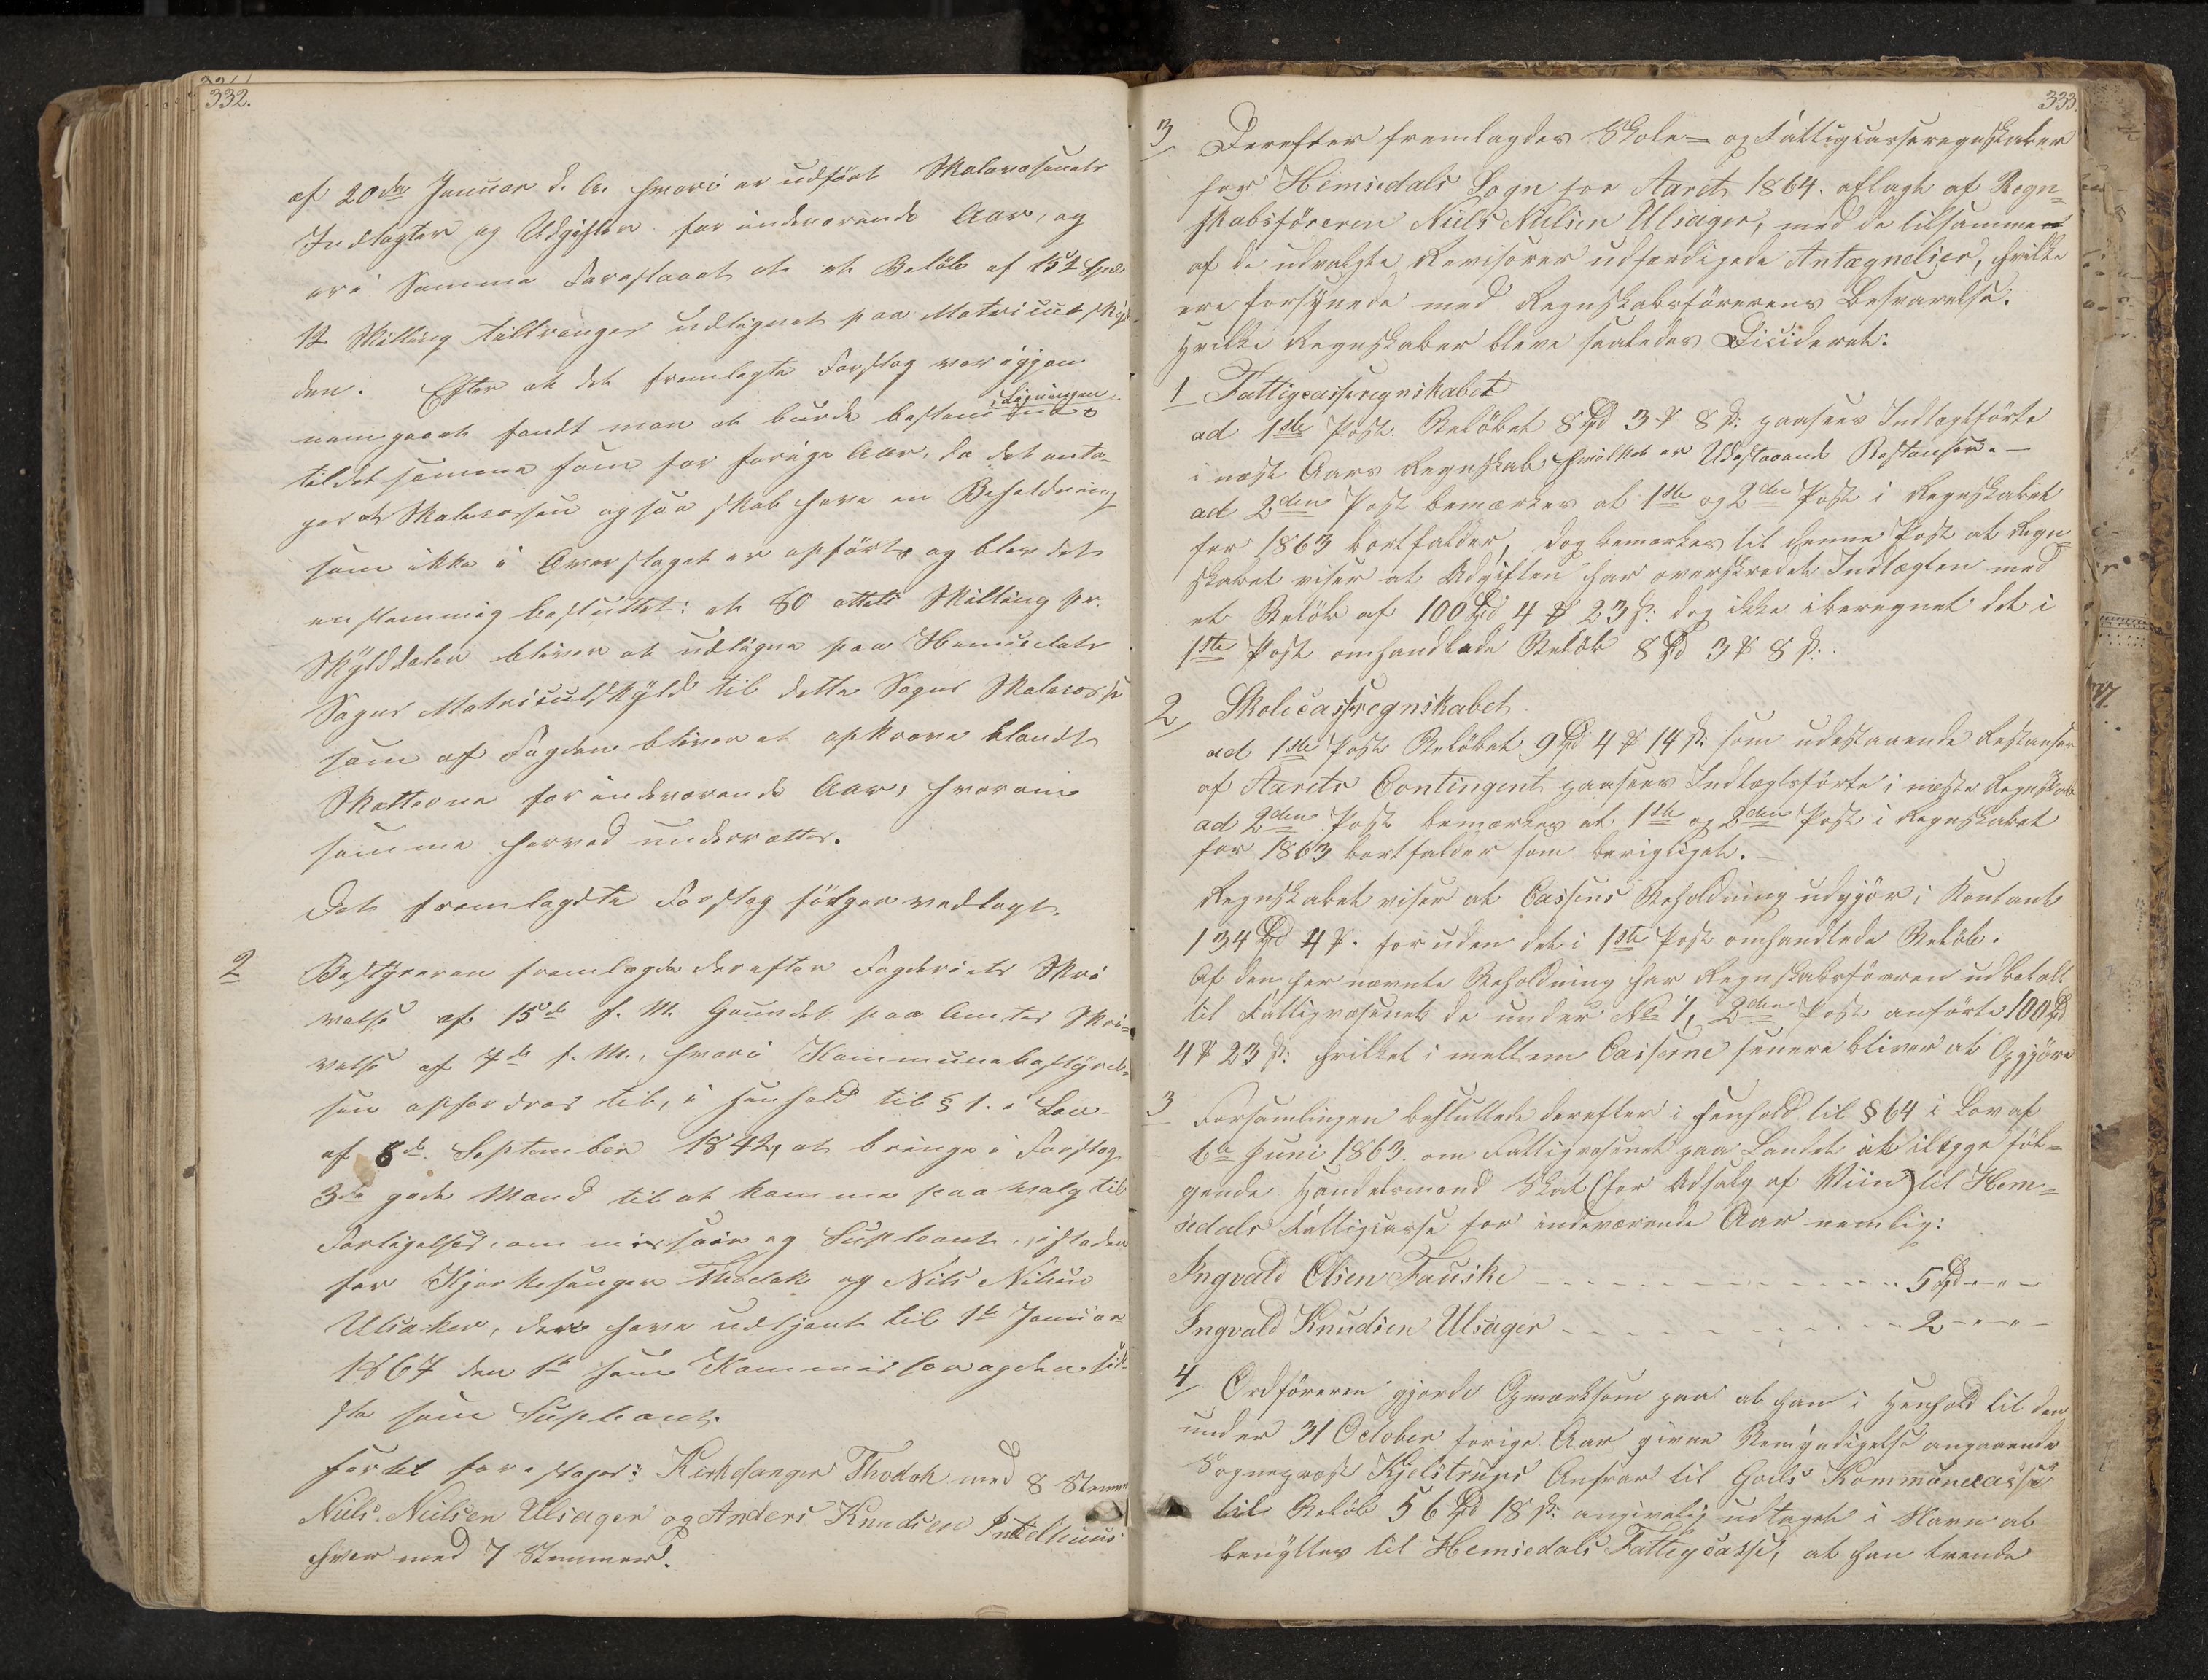 332.
af 20de Januar d. A. hvori er udført Skolevæsenets
Indtægter og Udgifter for indeværende Aar, og
er i Samme foreslaaet at et Beløb af 152 Spd
12 Skilling tiltrænges udlignet paa Matriculskyl-
den. Efter at det fremlagte Forslag var igjen
nemgaaet fandt man at burde bestemme Ligningen
til det samme som for forrige Aar, da det anta-
ges at Skolecassen ogsaa skal have en Beholdning
som ikke i Overslaget er opført, og blev det
enstemmig besluttet: at 80 otteti Skilling pr.
Skylddaler bliver at udligne paa Hemsedals
Sogns Matriculskyld til dette Sogns Skolecasse
som af Fogden bliver at opkræve blandt
Skatterne for indeværende Aar, hvorom
samme herved underrettes.
Det fremlagdte Forslag følger vedlagt.
2 Bestyreren fremlagde derefter Fogderiets Skri
velse af 15de f. M. Grundet paa Amtets Skri-
velse af 7de f. M., hvori Kommunebestyrel-
sen opfordres til, i Henhold til § 1. i Lov
af 8de September 1842, at bringe i Forslag
3de gode Mænd til at komme paa Valg til
Forligelsescommissair og Supleant, istedet
for Kjerkesanger Thodok og Nils Nilsen
Ulsaker, der have udtjent til 1ste Januar
1867 den 1ste som Kommissær og den sid-
ste som Supleant.
Hertil foreslages: Kirkesanger Thodok med 8 Stemmer
Niels Nielsen Ulsager og Anders Knudsen Intelhuus
hver med 7 Stemmer.
333.
3 Derefter fremlagdes Skole- og Fattigcasseregnskaber
for Hemsedals Sogn for Aaret 1864. aflagt af Regn-
skabsføreren Niels Nielsen Ulsager, med de tilsammen
af de udvalgte Revisorer udfærdigede Antægnelser, hvilke
ere forsynede med Regnskabsførerens Besvarelse.
Hvilke Regnskaber bleve saaledes Decideret:
1 Fattigcasseregnskabet
ad 1ste Post. Beløbet 8 Spd 3 ₰ 8 ß: paasees Indtægtførte
i næste Aars Regnskab hvilket er Udestaaende Restanser.-
ad 2den Post bemærkes at 1ste og 2den Post i Regnskabet
for 1863 bortfalder, dog bemærkes til denne Post at Regn-
skabet viser at Udgiften har overskredet Indtægten med
et Beløb af 100 Spd 4 ₰ 23 ß: dog ikke iberegnet det i
1ste Post omhandlede Beløb 8 Spd 3 ₰ 8 ß:
2 Skolecasseregnskabet
ad 1ste Post Beløbet 9 Spd 4 ₰ 14 ß: som udestaaende Restanser
af Aarets Contingent paasees Indtægtsførte i næste Regnskab
ad 2den Post bemærkes at 1ste og 2den Post i Regnskabet
for 1863 bortfalder som berigtiget.
Regnskabet viser at Cassens Beholdning udgjør i Kontant
134 Spd 4 ₰. foruden det i 1ste Post omhandlede Beløb.
Af den her nævnte Beholdning har Regnskabsføreren udbetalt
til Fattigvæsenet de under No 1, 2den Post anførte 100 Spd
4 ₰ 23 ß: hvilket imellem Casserne senere bliver at Opgjøre
3 Forsamlingen besluttede derefter i Henhold til § 64 i Lov af
6te Juni 1863. om Fattigvæsenet paa Landet at ilægge føl-
gende Handelsmænd Skat (for Udsalg af Viin) til Hem-
sedals Fattigcasse for indeværende Aar nemlig:
Ingvald Olsen Fauske - - - - - - - - - - - - - 5 Spd - " -
Ingvald Knudsen Ulsager - - - - - - - - - - - 2 - " - " -
4 Ordføreren gjorde Opmærksom paa at han i Henhold til den
under 31 October forrige Aar givne Bemyndigelse angaaende
Sogneprest Kjelstrups Ansvar til Goels Kommunecasse
til Beløb 56 Spd 18 ß: angivelig udtaget i Navn at
benyttes til Hemsedals Fattigcasse, at han trende